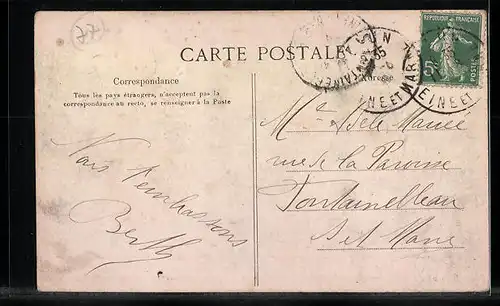 77
CARTE POSTALE
Correspondance
Tous les pays étrangers, n'acceptent pas la
correspondance au recto, se renseigner à la Poste
Adresse
REPUBLIQUE FRANÇAISE
5c
POSTES
SEINE ET MARNE
SEINE ET
Vous embrassons
Berthe
Melle
rue de la Paroisse
Fontainebleau
S et Marne